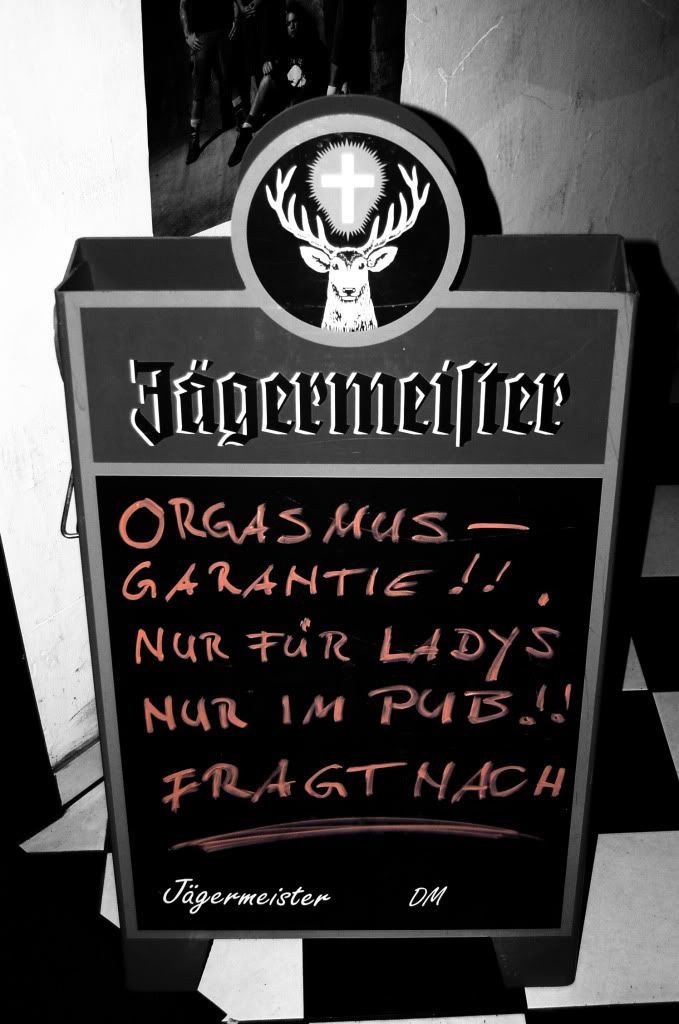 Jägermeiſter
ORGASMUS —
GARANTIE !! .
NUR FÜR LADYS
NUR IM PUB.!!
FRAGT NACH
Jägermeister DM